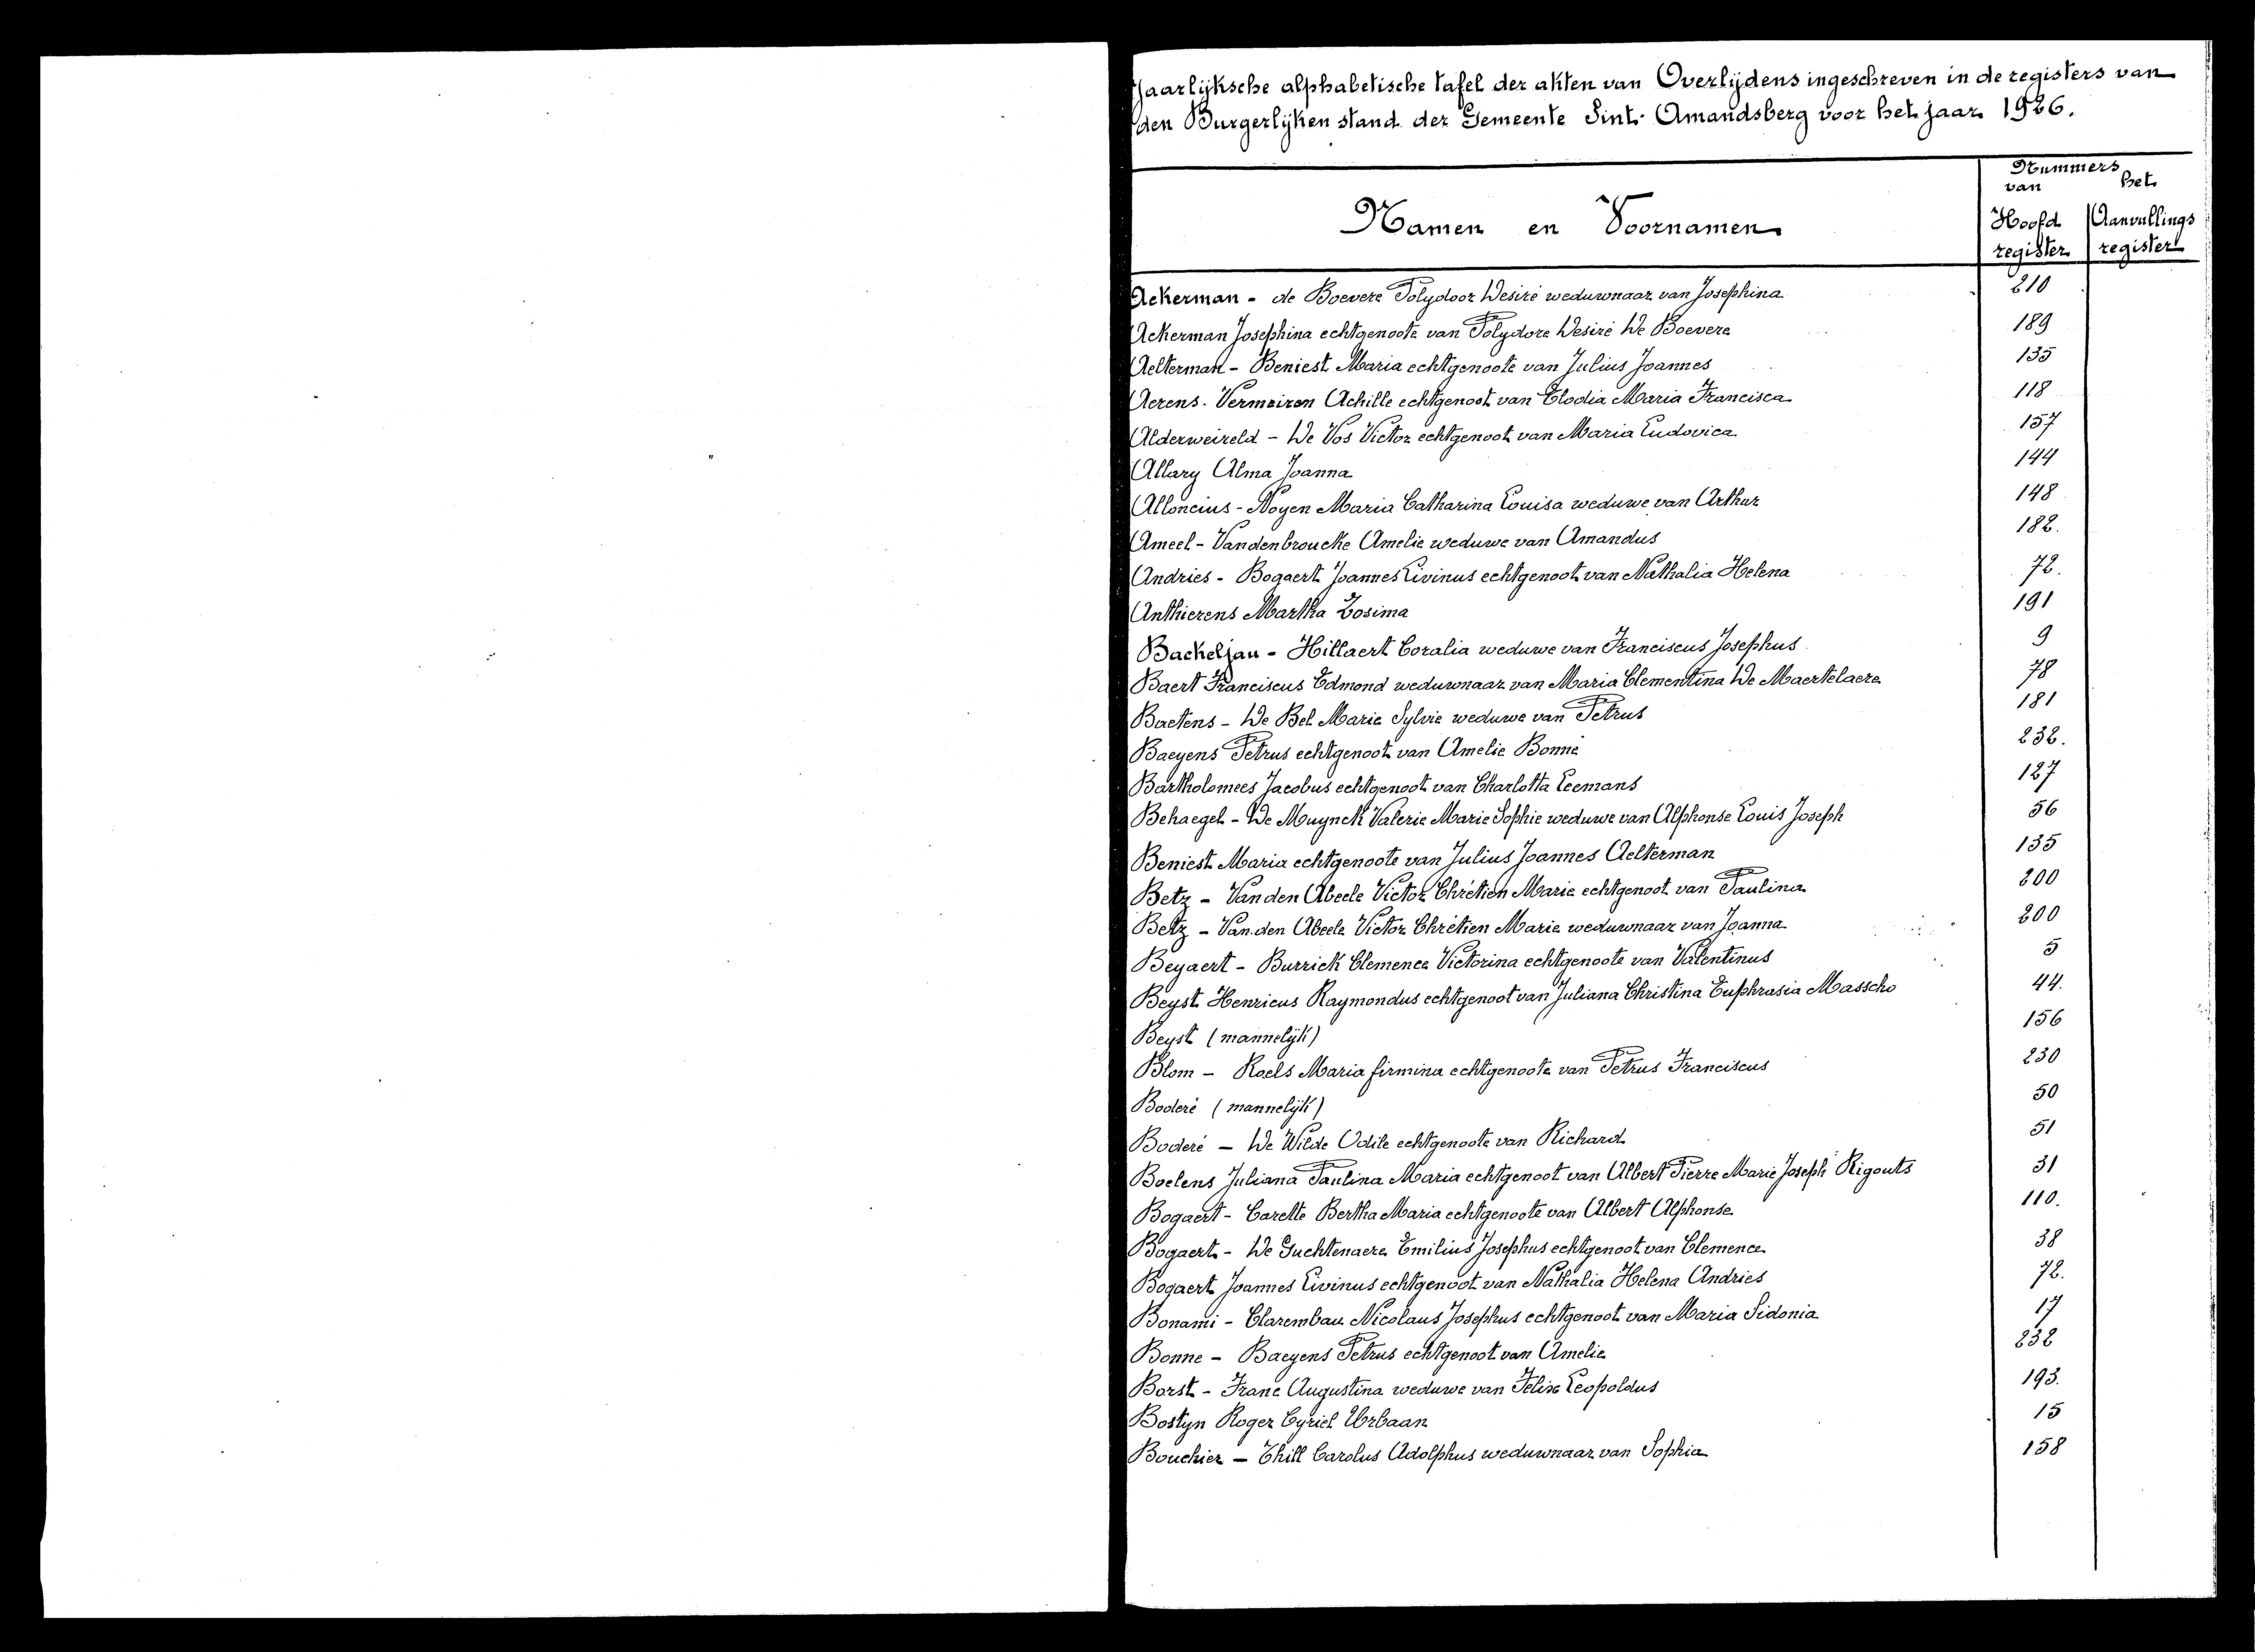 Jaarlijksche alphabetische tafel der akten van Overlijdens ingeschreven in de registers van
den Burgerlijken stand der Gemeente Sint-Amandsberg voor het jaar 1926.
Nummers
van het
Namen en Voornamen
Hoofd Aanvullings
register register
Ackerman - de Boevere Polydoor Desiré weduwnaar van Josephina 210
Ackerman Josephina echtgenoote van Polydore Desiré De Boevere 189
Aelterman - Beniest Maria echtgenoote van Julius Joannes 135
Aerens - Vermeiren Achille echtgenoot van Elodia Maria Francisca 118
Alderweireld - De Vos Victor echtgenoot van Maria Ludovica 157
Allary Alma Joanna 144
Alloncius - Noyen Maria Catharina Louisa weduwe van Arthur 148
Ameel - Vandenbroucke Amelie weduwe van Amandus 182.
Andries - Bogaert Joannes Livinus echtgenoot van Nathalia Helena 72.
Anthierens Martha Zosima 191
Backeljau - Hillaert Coralia weduwe van Franciscus Josephus 9
Baert Franciscus Edmond weduwnaar van Maria Clementina De Maertelaere 78
Baetens - De Bel Marie Sylvie weduwe van Petrus 181
Baeyens Petrus echtgenoot van Amelie Bonne 232.
Bartholomees Jacobus echtgenoot van Charlotta Leemans 127
Behaegel - De Muynck Valerie Marie Sophie weduwe van Alphonse Louis Joseph 56
Beniest Maria echtgenoote van Julius Joannes Aelterman 135
Betz - Van den Abeele Victor Chrétien Marie echtgenoot van Paulina 200
Betz - Van den Abeele Victor Chrétien Marie weduwnaar van Joanna 200
Beyaert - Burrick Clemence Victorina echtgenoote van Valentinus 5
Beyst Henricus Raymondus echtgenoot van Juliana Christina Euphrasia Masscho 44.
Beyst (mannelijk) 156
Blom - Roels Maria firmina echtgenoote van Petrus Franciscus 230
Boderé (mannelijk) 50
Boderé - De Wilde Odile echtgenoote van Richard 51
Boelens Juliana Paulina Maria echtgenoot van Albert Pierre Marie Joseph Rigouts 31
Bogaert - Carette Bertha Maria echtgenoote van Albert Alphonse 110.
Bogaert - De Guchtenaere Emilius Josephus echtgenoot van Clemence 38
Bogaert Joannes Livinus echtgenoot van Nathalia Helena Andries 72.
Bonami - Clarembau Nicolaus Josephus echtgenoot van Maria Sidonia 17
Bonne - Baeyens Petrus echtgenoot van Amelie 232
Borst - Franc Augustina weduwe van Felix Leopoldus 193.
Bostyn Roger Cyriel Urbaan 15
Bouchier - Thill Carolus Adolphus weduwnaar van Sophia 158